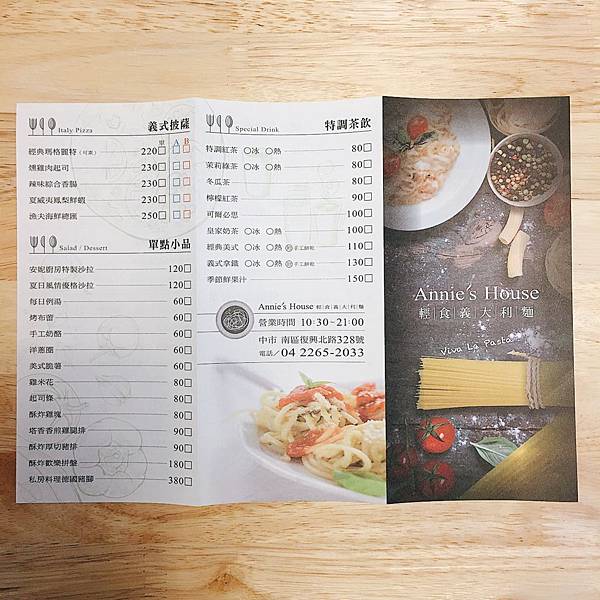 Italy Pizza 義式披薩
單 A B
經典瑪格麗特(可素) 220
燻雞肉起司 230
辣味綜合香腸 230
夏威夷鳳梨鮮蝦 230
漁夫海鮮總匯 250
Salad / Dessert 單點小品
安妮廚房特製沙拉 120
夏日風情優格沙拉 120
每日例湯 60
烤布蕾 60
手工奶酪 60
洋蔥圈 60
美式脆薯 60
雞米花 80
起司條 80
酥炸雞塊 80
塔香香煎雞腿排 90
酥炸厚切豬排 90
酥炸歡樂拼盤 180
私房料理德國豬腳 380
Special Drink 特調茶飲
特調紅茶 ○冰 ○熱 80
茉莉綠茶 ○冰 ○熱 80
冬瓜茶 80
檸檬紅茶 90
可爾必思 100
皇家奶茶 ○冰 ○熱 100
經典美式 ○冰 ○熱 附手工餅乾 110
義式拿鐵 ○冰 ○熱 附手工餅乾 130
季節鮮果汁 150
Annie's House 輕食義大利麵
營業時間 10:30~21:00
中市 南區復興北路328號
電話/04 2265-2033
Annie's House
輕食義大利麵
Viva La Pasta